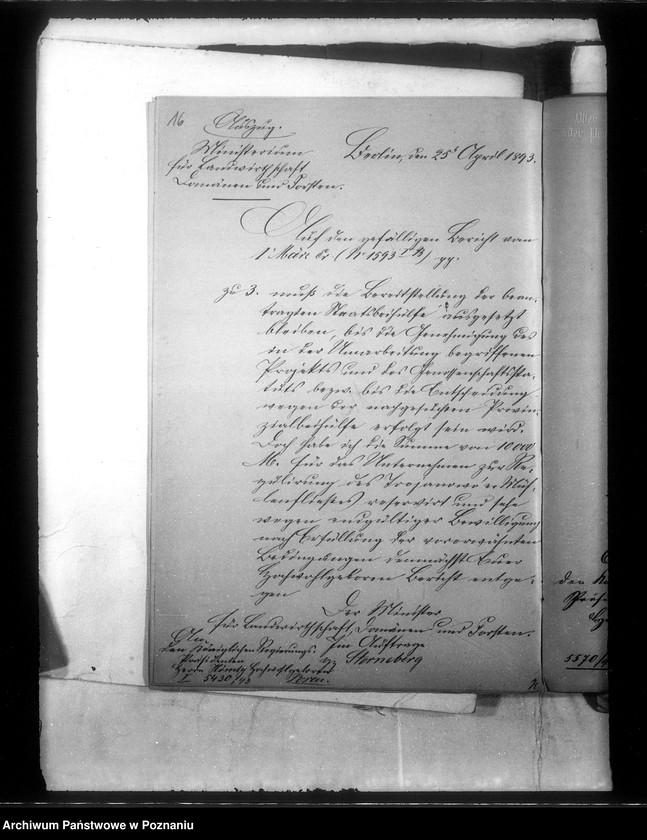 16
Auszug.
Ministerium
für Landwirthschaft
Domänen und Forsten.
Berlin, den 25t April 1893.
Auf den gefälligen Bericht vom
1 März cr (No 1593 I B) pp.
zu 3. muß die Bereitstellung der bean-
tragten Staatsbeihülfe ausgesetzt
bleiben, bis die Genehmigung des
in der Umarbeitung begriffenen
Projekts und des Genossenschaftssta-
tuts bezw. bis die Entscheidung
wegen der nachgesuchten Provin-
zialbeihülfe erfolgt sein wird.
Doch habe ich die Summe von 10 000
M. für das Unternehmen zur Re-
gulirung des Trojanowo'er Müh-
lenfließes reservirt und sehe
wegen endgültiger Bewilligung
nach Erfüllung der vorerwähnten
Bedingungen demnächst Euer
Hochwohlgeboren Bericht entge-
gen
Der Minister
für Landwirthschaft, Domänen und Forsten.
Im Auftrage
gez Sterneberg
An
den Königlichen Regierungs-
Präsidenten
Herrn Hochwohlgeboren
I 5430/93 Posen.
Präs
5570/
Archiwum Państwowe w Poznaniu